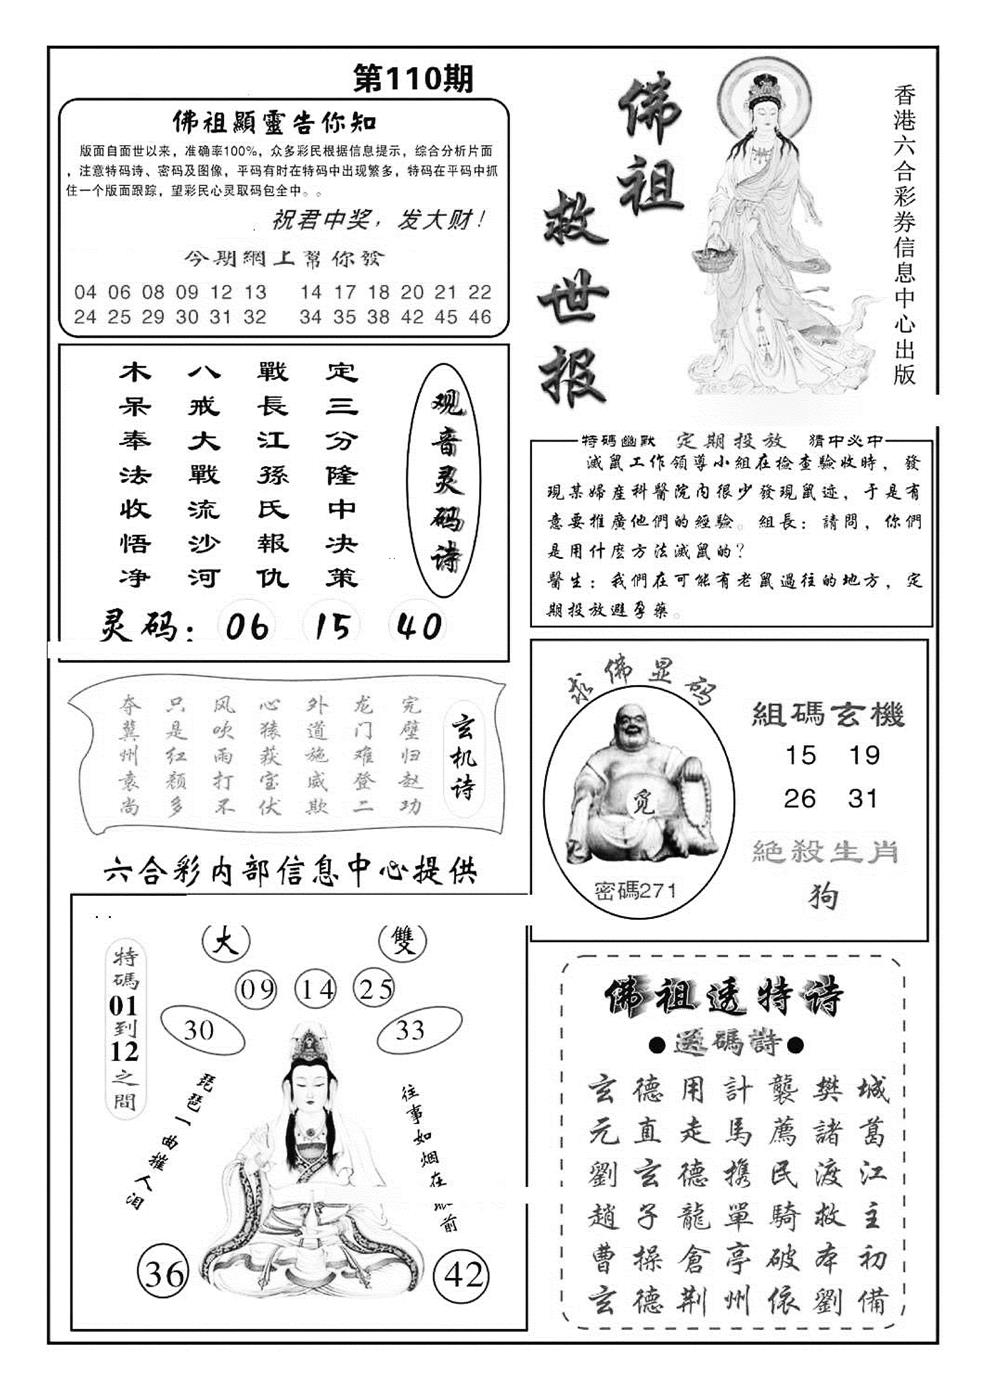 第110期
佛祖顯靈告你知
版面自面世以来，准确率100%，众多彩民根据信息提示，综合分析片面
，注意特码诗、密码及图像，平码有时在特码中出现繁多，特码在平码中抓
住一个版面跟踪，望彩民心灵取码包全中。。
祝君中奖，发大财！
今期網上幫你發
04 06 08 09 12 13 14 17 18 20 21 22
24 25 29 30 31 32 34 35 38 42 45 46
佛祖
救世报
香港六合彩券信息中心出版
观音灵码诗
定三分隆中决策
戰長江孫氏報仇
八戒大戰流沙河
木呆奉法收悟净
灵码：06 15 40
特碼幽默 定期投放 猜中必中
滅鼠工作領導小組在檢查驗收時，發
現某婦産科醫院内很少發現鼠迹，于是有
意要推廣他們的經驗。組長：請問，你們
是用什麽方法滅鼠的？
醫生：我們在可能有老鼠過往的地方，定
期投放避孕藥。
玄机诗
完璧归赵功
龙门难登二
外道施威欺
心猿获宝伏
风吹雨打不
只是红颜多
夺冀州袁尚
六合彩内部信息中心提供
求佛显码
觅
密碼271
組碼玄機
15 19
26 31
絕殺生肖
狗
特碼01到12之間
大 雙
09 14 25
30 33
琵琶一曲摧人泪
往事如烟在眼前
36 42
佛祖透特诗
●送碼詩●
玄德用計襲樊城
元直走馬薦諸葛
劉玄德携民渡江
趙子龍單騎救主
曹操倉亭破本初
玄德荆州依劉備